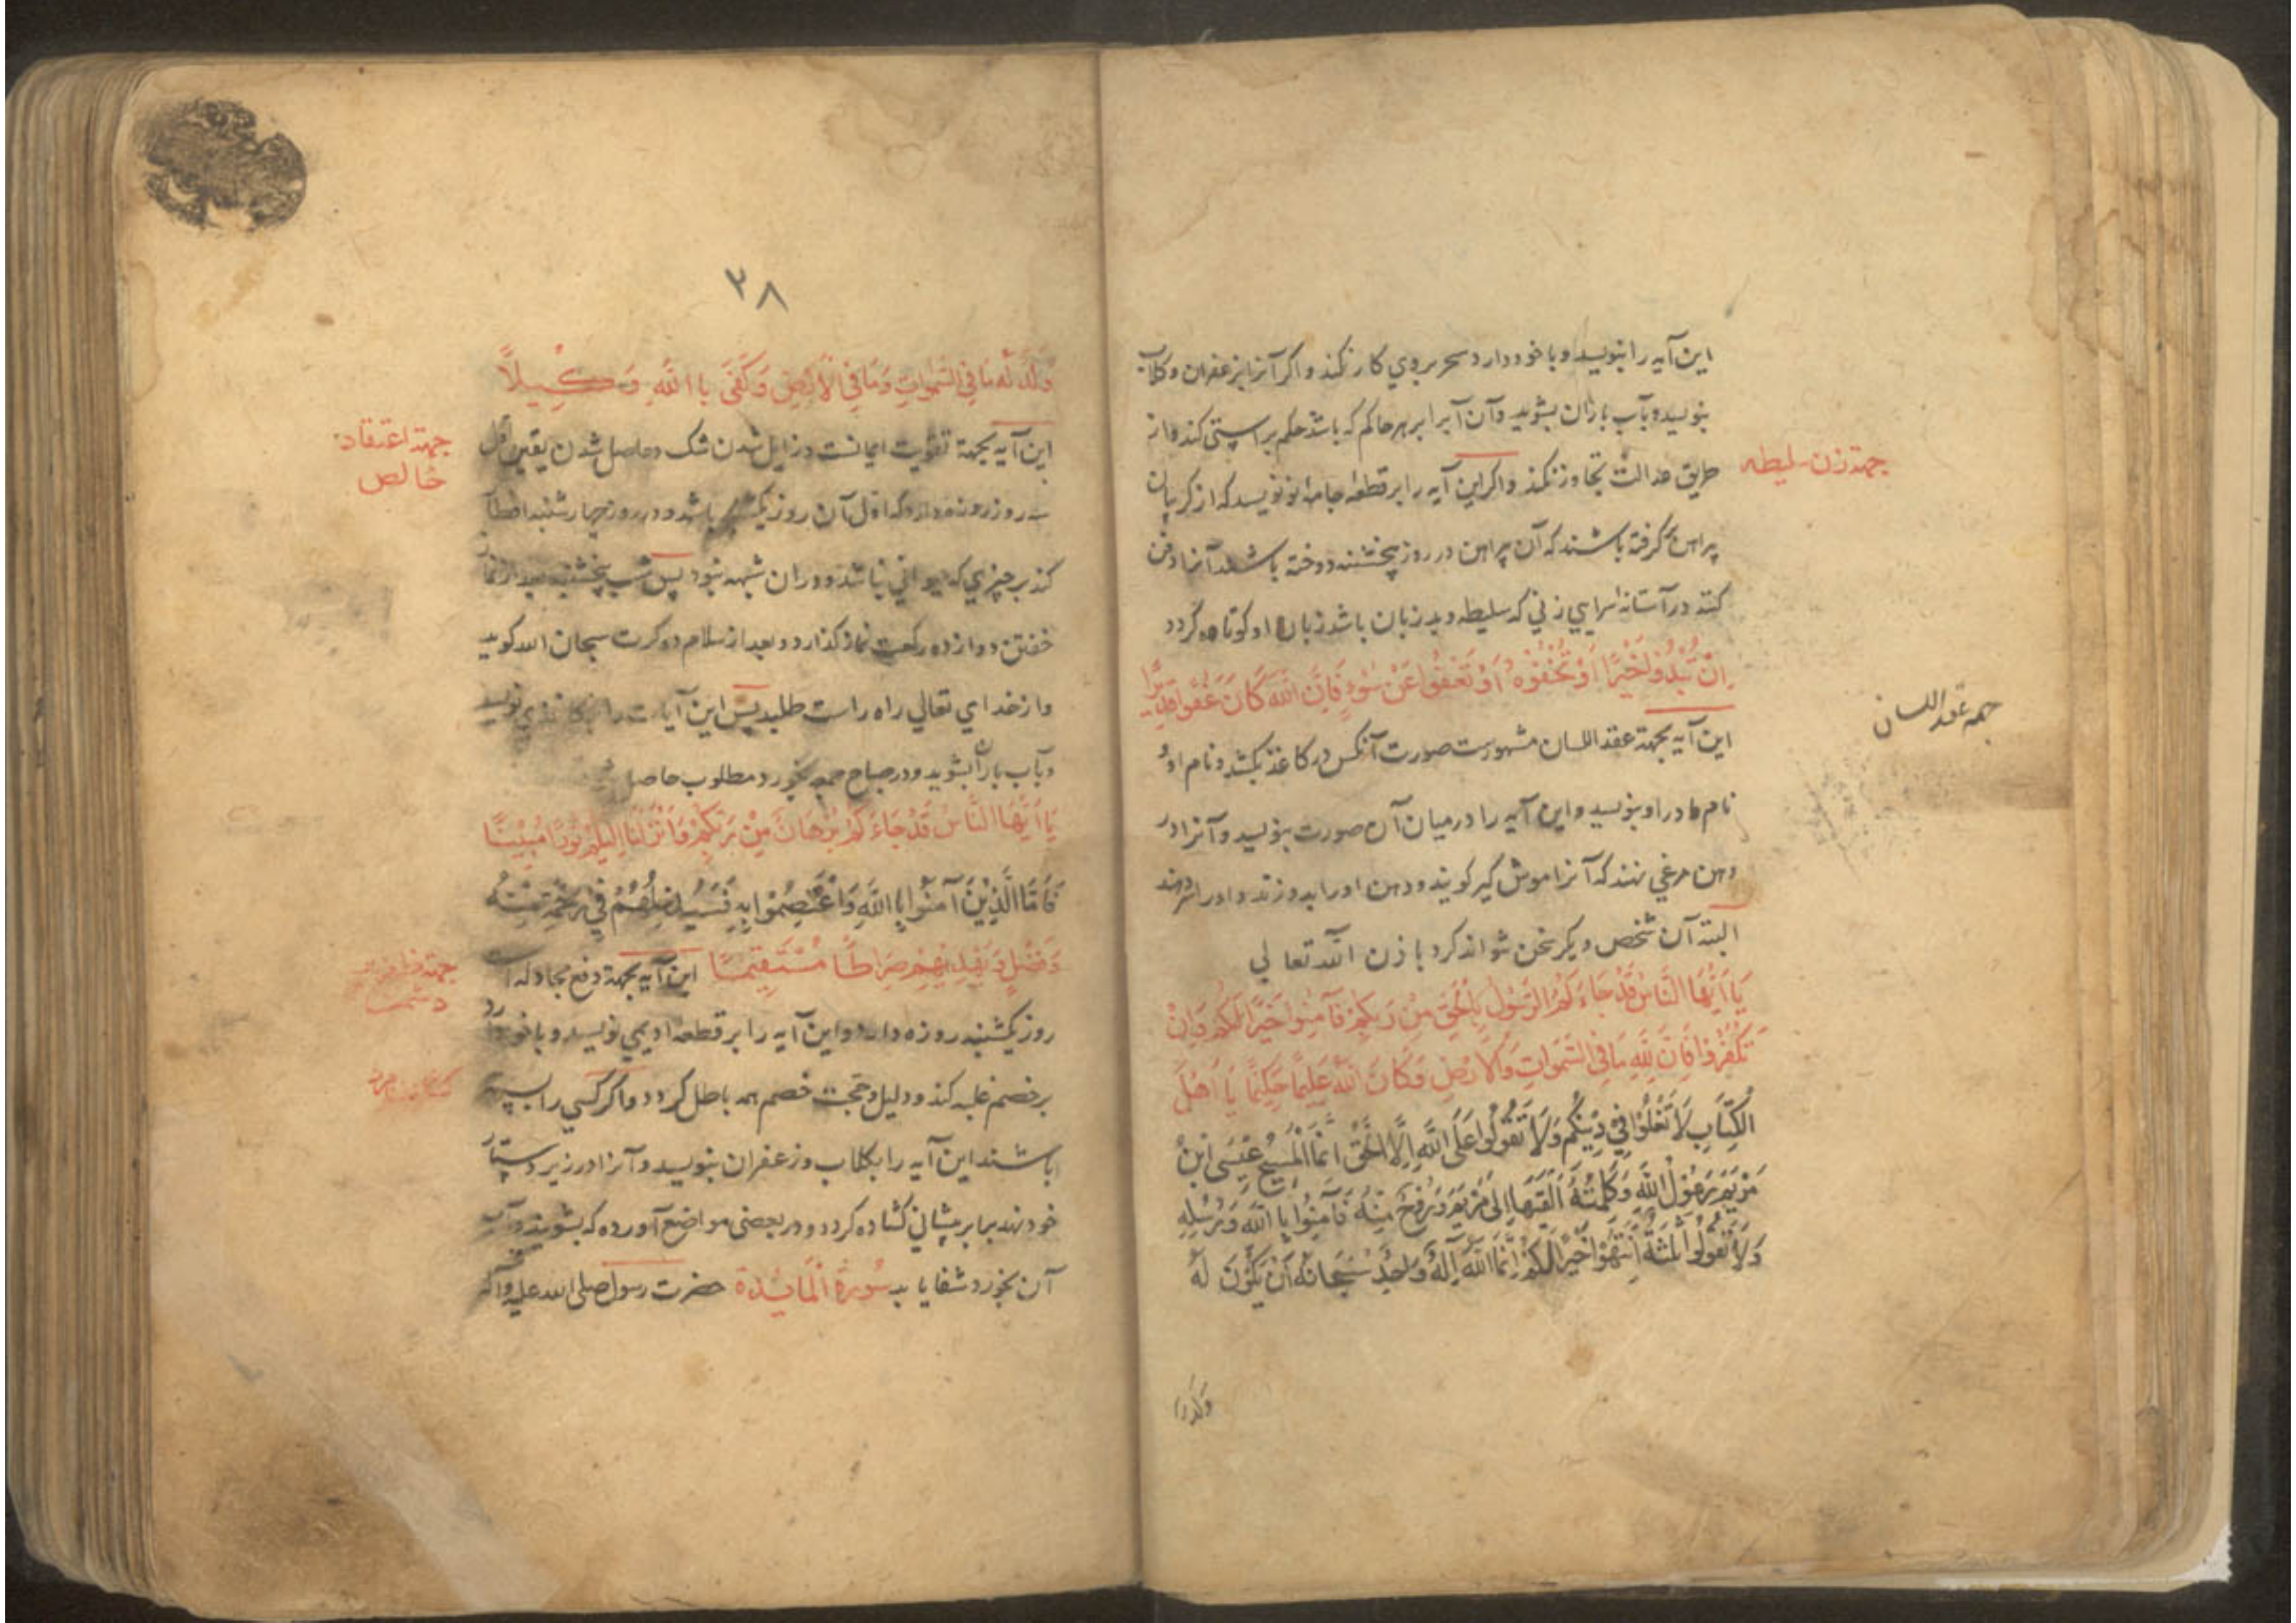 این آیه را بنویسد و با خود دارد سحر بر وی کار نکند و اکر آنرا بزعفران و کلاب
بنویسد و بآب باران بشوید و آن آب را بر هر حاکم که باشد حکم براستی کند و از
طریق عدالت تجاوز نکند و اکر این آیه را بر قطعه جامه نو نویسد که از کریبان
جهة زن سلیطه
پیراهن کرفته باشند که آن پیراهن در روز پنجشنبه دوخته باشند آنرا دفن
کنند در آستانه سرایی زنی که سلیطه و بد زبان باشد زبان او کوتاه کردد
اِنْ تُبْدُوا خَيْرًا اَوْ تُخْفُوهُ اَوْ تَعْفُوا عَنْ سُوءٍ فَاِنَّ اللهَ كَانَ عَفُوًّا قَدِيرًا
جهة عقد اللسان
این آیه بجهة عقد اللسان مشهورست صورت آنکس در کاغذ بکشد و نام او و
نام مادر او بنویسد و این آیه را در میان آن صورت بنویسد و آنرا در
دهن مرغی نهند که آنرا موش کیر کویند و دهن او را بدوزند و او را سر دهند
البته آن شخص دیکر سخن نتواند کرد باذن الله تعالی
يَا اَيُّهَا النَّاسُ قَدْ جَاءَكُمُ الرَّسُولُ بِالْحَقِّ مِنْ رَبِّكُمْ فَآمِنُوا خَيْرًا لَكُمْ وَاِنْ
تَكْفُرُوا فَاِنَّ لِلّٰهِ مَا فِي السَّمٰوَاتِ وَالْاَرْضِ وَكَانَ اللهُ عَلِيمًا حَكِيمًا يَا اَهْلَ
الْكِتَابِ لَا تَغْلُوا فِي دِينِكُمْ وَلَا تَقُولُوا عَلَى اللهِ اِلَّا الْحَقَّ اِنَّمَا الْمَسِيحُ عِيسَى ابْنُ
مَرْيَمَ رَسُولُ اللهِ وَكَلِمَتُهُ اَلْقٰيهَا اِلٰى مَرْيَمَ وَرُوحٌ مِنْهُ فَآمِنُوا بِا اللهِ وَرُسُلِهِ
وَلَا تَقُولُوا ثَلٰثَةٌ اِنْتَهُوا خَيْرًا لَكُمْ اِنَّمَا اللهُ اِلٰهٌ وَاحِدٌ سُبْحَانَهُ اَنْ يَكُونَ لَهُ
۲۸
وَلَدٌ لَهُ مَا فِي السَّمٰوَاتِ وَمَا فِي الْاَرْضِ وَكَفٰى بِا اللهِ وَكِيلًا
این آیه بجهة تقویت ایمانست و زایل شدن شک و حاصل شدن یقین اول
جهة اعتقاد
خالص
سه روز روزه دارد که اول آن روز یکشنبه باشد و در روز چهارشنبه افطار
کند بر چیزی که حیوانی نباشد و در آن شبهه نبود پس شب پنجشنبه بعد از نماز
خفتن دوازده رکعت نماز کذارد و بعد از سلام ده کرت سبحان الله کوید
و از خدای تعالی راه راست طلبد پس این آیات را بکاغذی نویسد
و بآب باران بشوید و در صباح جمعه بخورد مطلوب حاصل
يَا اَيُّهَا النَّاسُ قَدْ جَاءَكُمْ بُرْهَانٌ مِنْ رَبِّكُمْ وَاَنْزَلْنَا اِلَيْكُمْ نُورًا مُبِينًا
فَاَمَّا الَّذِينَ آمَنُوا بِا اللهِ وَاعْتَصَمُوا بِهِ فَسَيُدْخِلُهُمْ فِي رَحْمَةٍ مِنْهُ
وَفَضْلٍ وَيَهْدِيهِمْ صِرَاطًا مُسْتَقِيمًا این آیه بجهة دفع مجادله است
روز یکشنبه روزه دارد و این آیه را بر قطعه ادیمی نویسد و با خود دارد
بر خصم غلبه کند و دلیل و حجت خصم همه باطل کردد و اکر کسی را بسته
باشند این آیه را بکلاب و زعفران بنویسد و آنرا در زیر دستار
خود نهد برابر پیشانی کشاده کردد و در بعضی مواضع آورده که بشویند و آب
آن بخورد شفا یابد سُورَةُ الْمَائِدَة حضرت رسول صلی الله علیه و آله